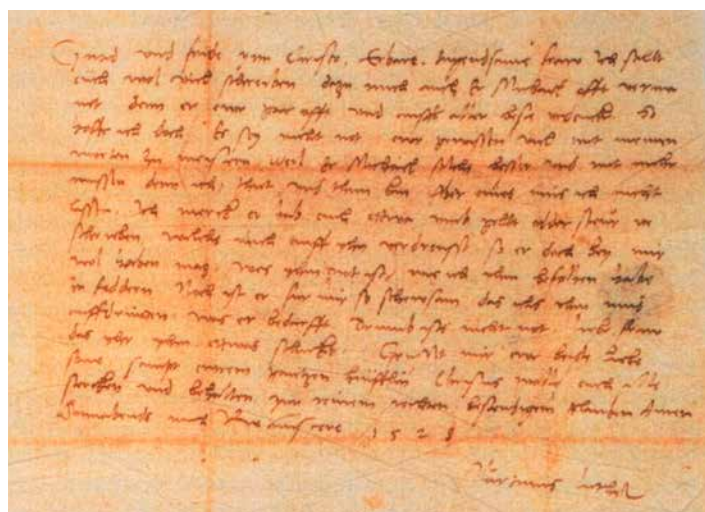 Gnad und fride ynn Christo. Erbare tugendsame fraw Ich sollt
euch wol viel schreiben dazu mich auch Er Michael offt verma
net denn er ewr gar offt und auffs aller beste gedenckt. So
hoffe ich doch Es sey nicht not ewr gewissen viel mit meinen
worten zu weil Er Michael solchs besser und mit mehr
wissen denn ich, thut und thun kan Aber eines mus ich nicht
lassen. Ich merck er hab euch etwa umb gellt odder steur ge
schrieben welchs mich auff yhn verdreusst so er doch bey mir
wol haben mag, was yhm not ist, wie ich yhm befolhen habe
zu foddern Noch ist er fur mir so schewsam das ichs yhm mus
auffdringen was er bedarfft Drumb ists nicht not liebe fraw
das yhr yhm etwas schickt. Grusset mir ewr beide liebe
sone sampt ewrem gantzen heufflin Christus wolle euch alle
stercken und behalten ynn reinem rechten bestendigem glauben Amen
Sonnabends nach 1528
Martinus Luther